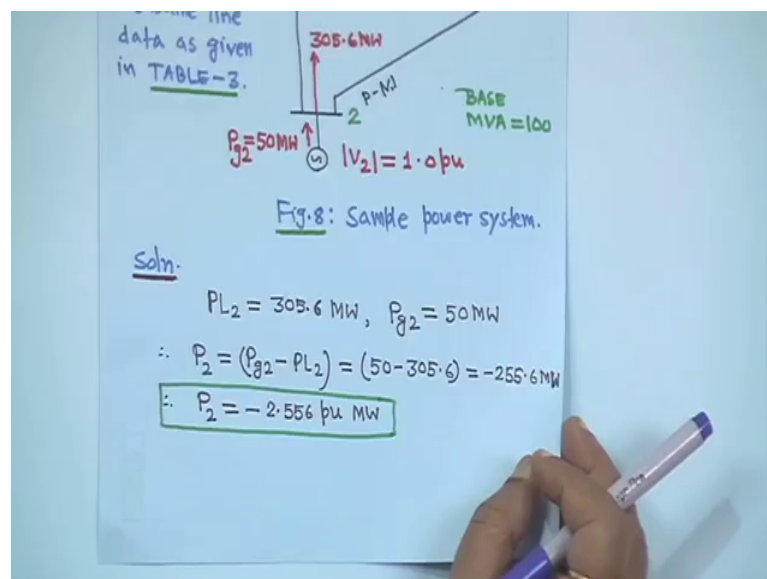 line
data as given
in TABLE-3.
305.6 MW
P-M
2
BASE
MVA = 100
Pg2 = 50 MW
|V2| = 1.0 pu
Fig.8: Sample power system.
Soln.
PL2 = 305.6 MW, Pg2 = 50 MW
∴ P2 = (Pg2 - PL2) = (50 - 305.6) = -255.6 MW
∴ P2 = - 2.556 pu MW